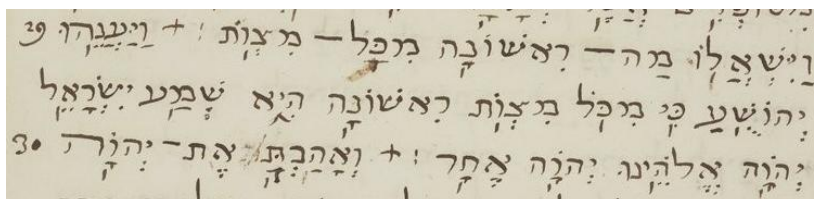 וַיִּשְׁאָלוֹ מַה־ רִאשׁוֹנָה מִכָּל־ מִצְוֹת ׃ + וַיַּעֲנֵהוּ 29
יְהוֹשֻׁעַ כִּי מִכֹּל מִצְוֹת רִאשׁוֹנָה הִיא שְׁמַע יִשְׂרָאֵל
יְהוָֹה אֱלֹהֵינוּ יְהוָֹה אֶחָד ׃ + וְאָהַבְתָּ אֶת־ יְהוָֹה 30